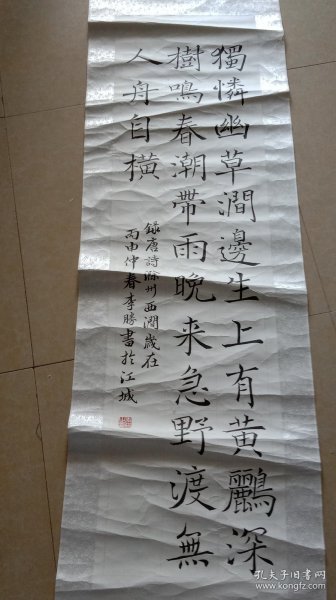 獨憐幽草澗邊生上有黃鸝深
樹鳴春潮帶雨晚来急野渡無
人舟自橫
録唐詩滁州西澗歲在
丙申仲春李勝書於江城
孔夫子旧书网
www.kongfz.com